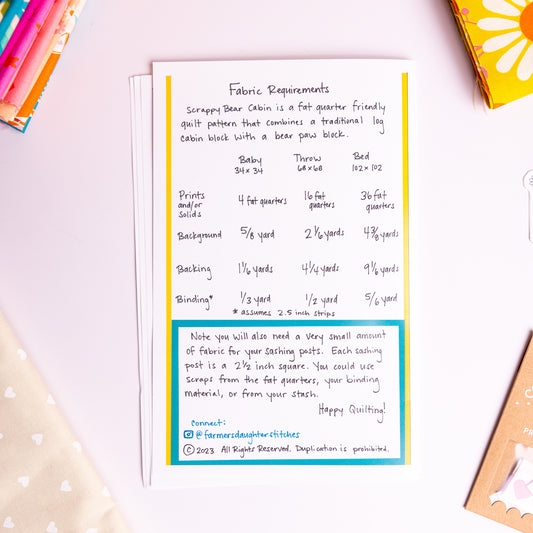 Fabric Requirements
Scrappy Bear Cabin is a fat quarter friendly
quilt pattern that combines a traditional log
cabin block with a bear paw block.
Baby Throw Bed
34 x 34 68 x 68 102 x 102
Prints and/or Solids 4 fat quarters 16 fat quarters 36 fat quarters
Background 5/8 yard 2 1/6 yards 4 3/8 yards
Backing 1 1/6 yards 4 1/4 yards 9 1/6 yards
Binding* 1/3 yard 1/2 yard 5/6 yard
* assumes 2.5 inch strips
Note you will also need a very small amount
of fabric for your sashing posts. Each sashing
post is a 2 1/2 inch square. You could use
scraps from the fat quarters, your binding
material, or from your stash.
Happy Quilting!
Connect:
@farmersdaughterstitches
© 2023 All Rights Reserved. Duplication is prohibited.